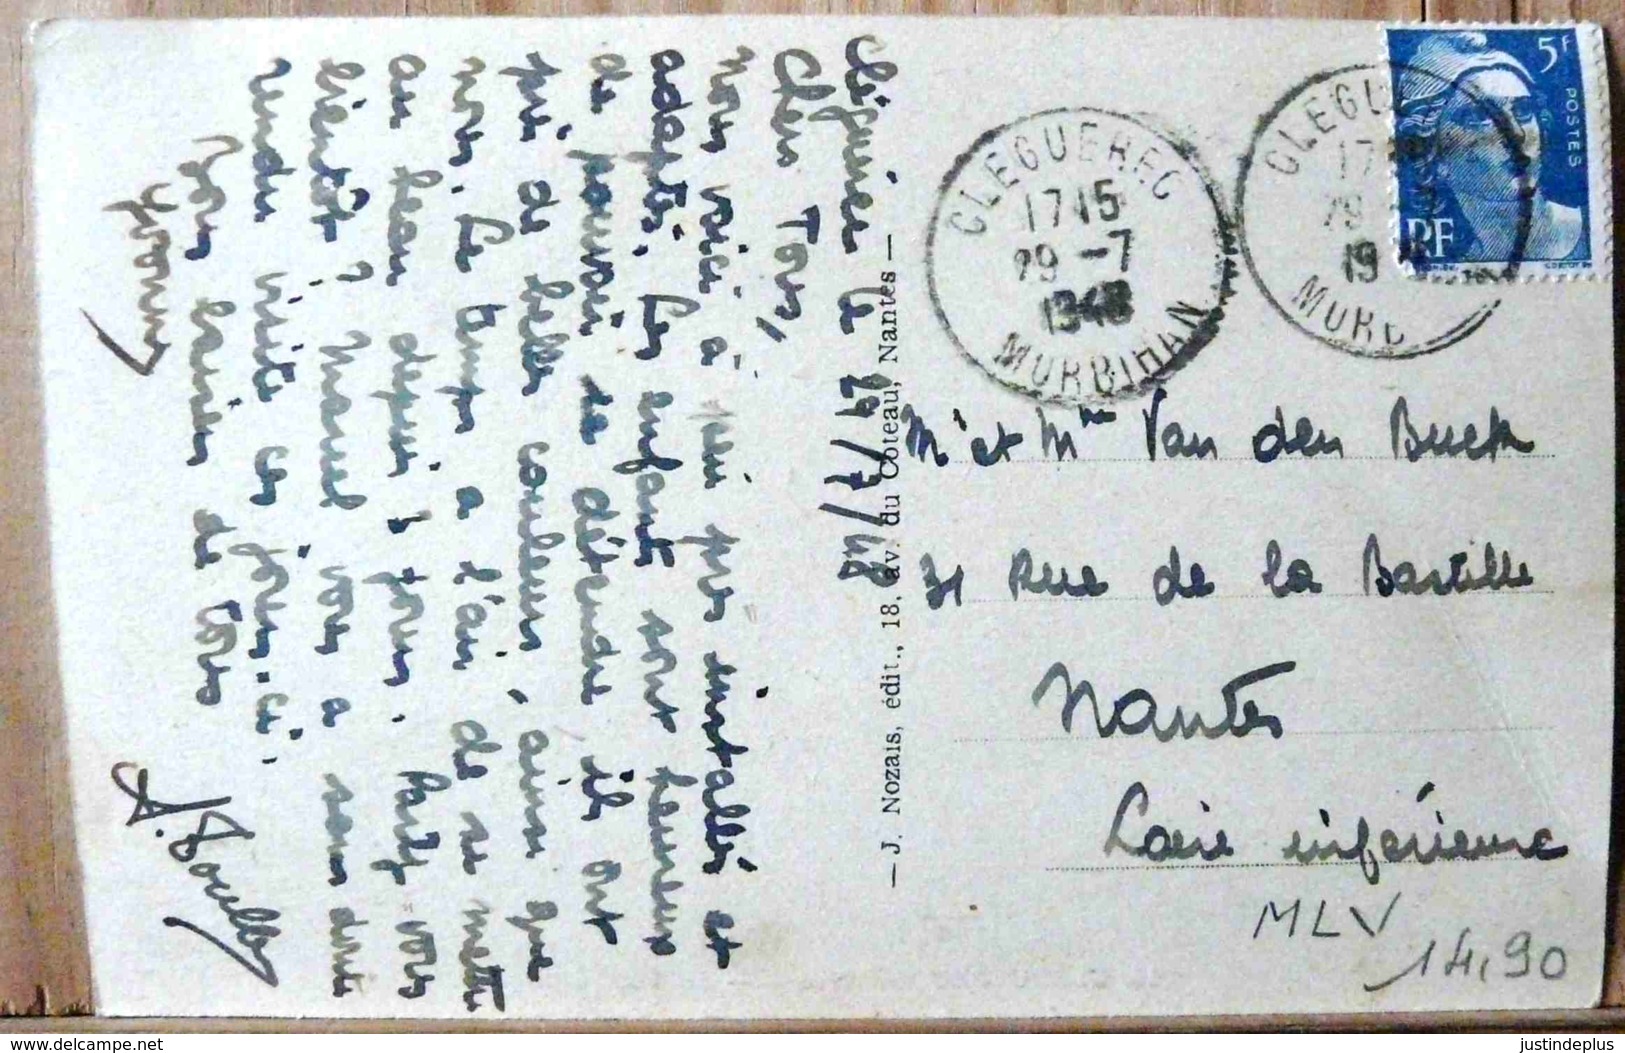 Cléguérec le 29/7/48
Chers Tous,
Nous voici à peu près installés et
adaptés. Les enfants sont heureux
de pouvoir se détendre ils ont
pris de belles couleurs, ainsi que
nous. Le temps a l'air de se mettre
au beau depuis 2 jours. Partez-vous
bientôt ? Marcel vous a sans doute
rendu visite ces jours-ci.
Bons baisers de tous
Yvonne
— J. Nozais, édit., 18, av. du Coteau, Nantes —
CLEGUEREC
17 15
29 -7
1948
MORBIHAN
CLEGUE
17
29
19
MORB
5F
POSTES
RF
Mr et Mme Van den Buck
31 Rue de la Bastille
Nantes
Loire inférieure
MLV
14,90
http://www.delcampe.net
justindeplus